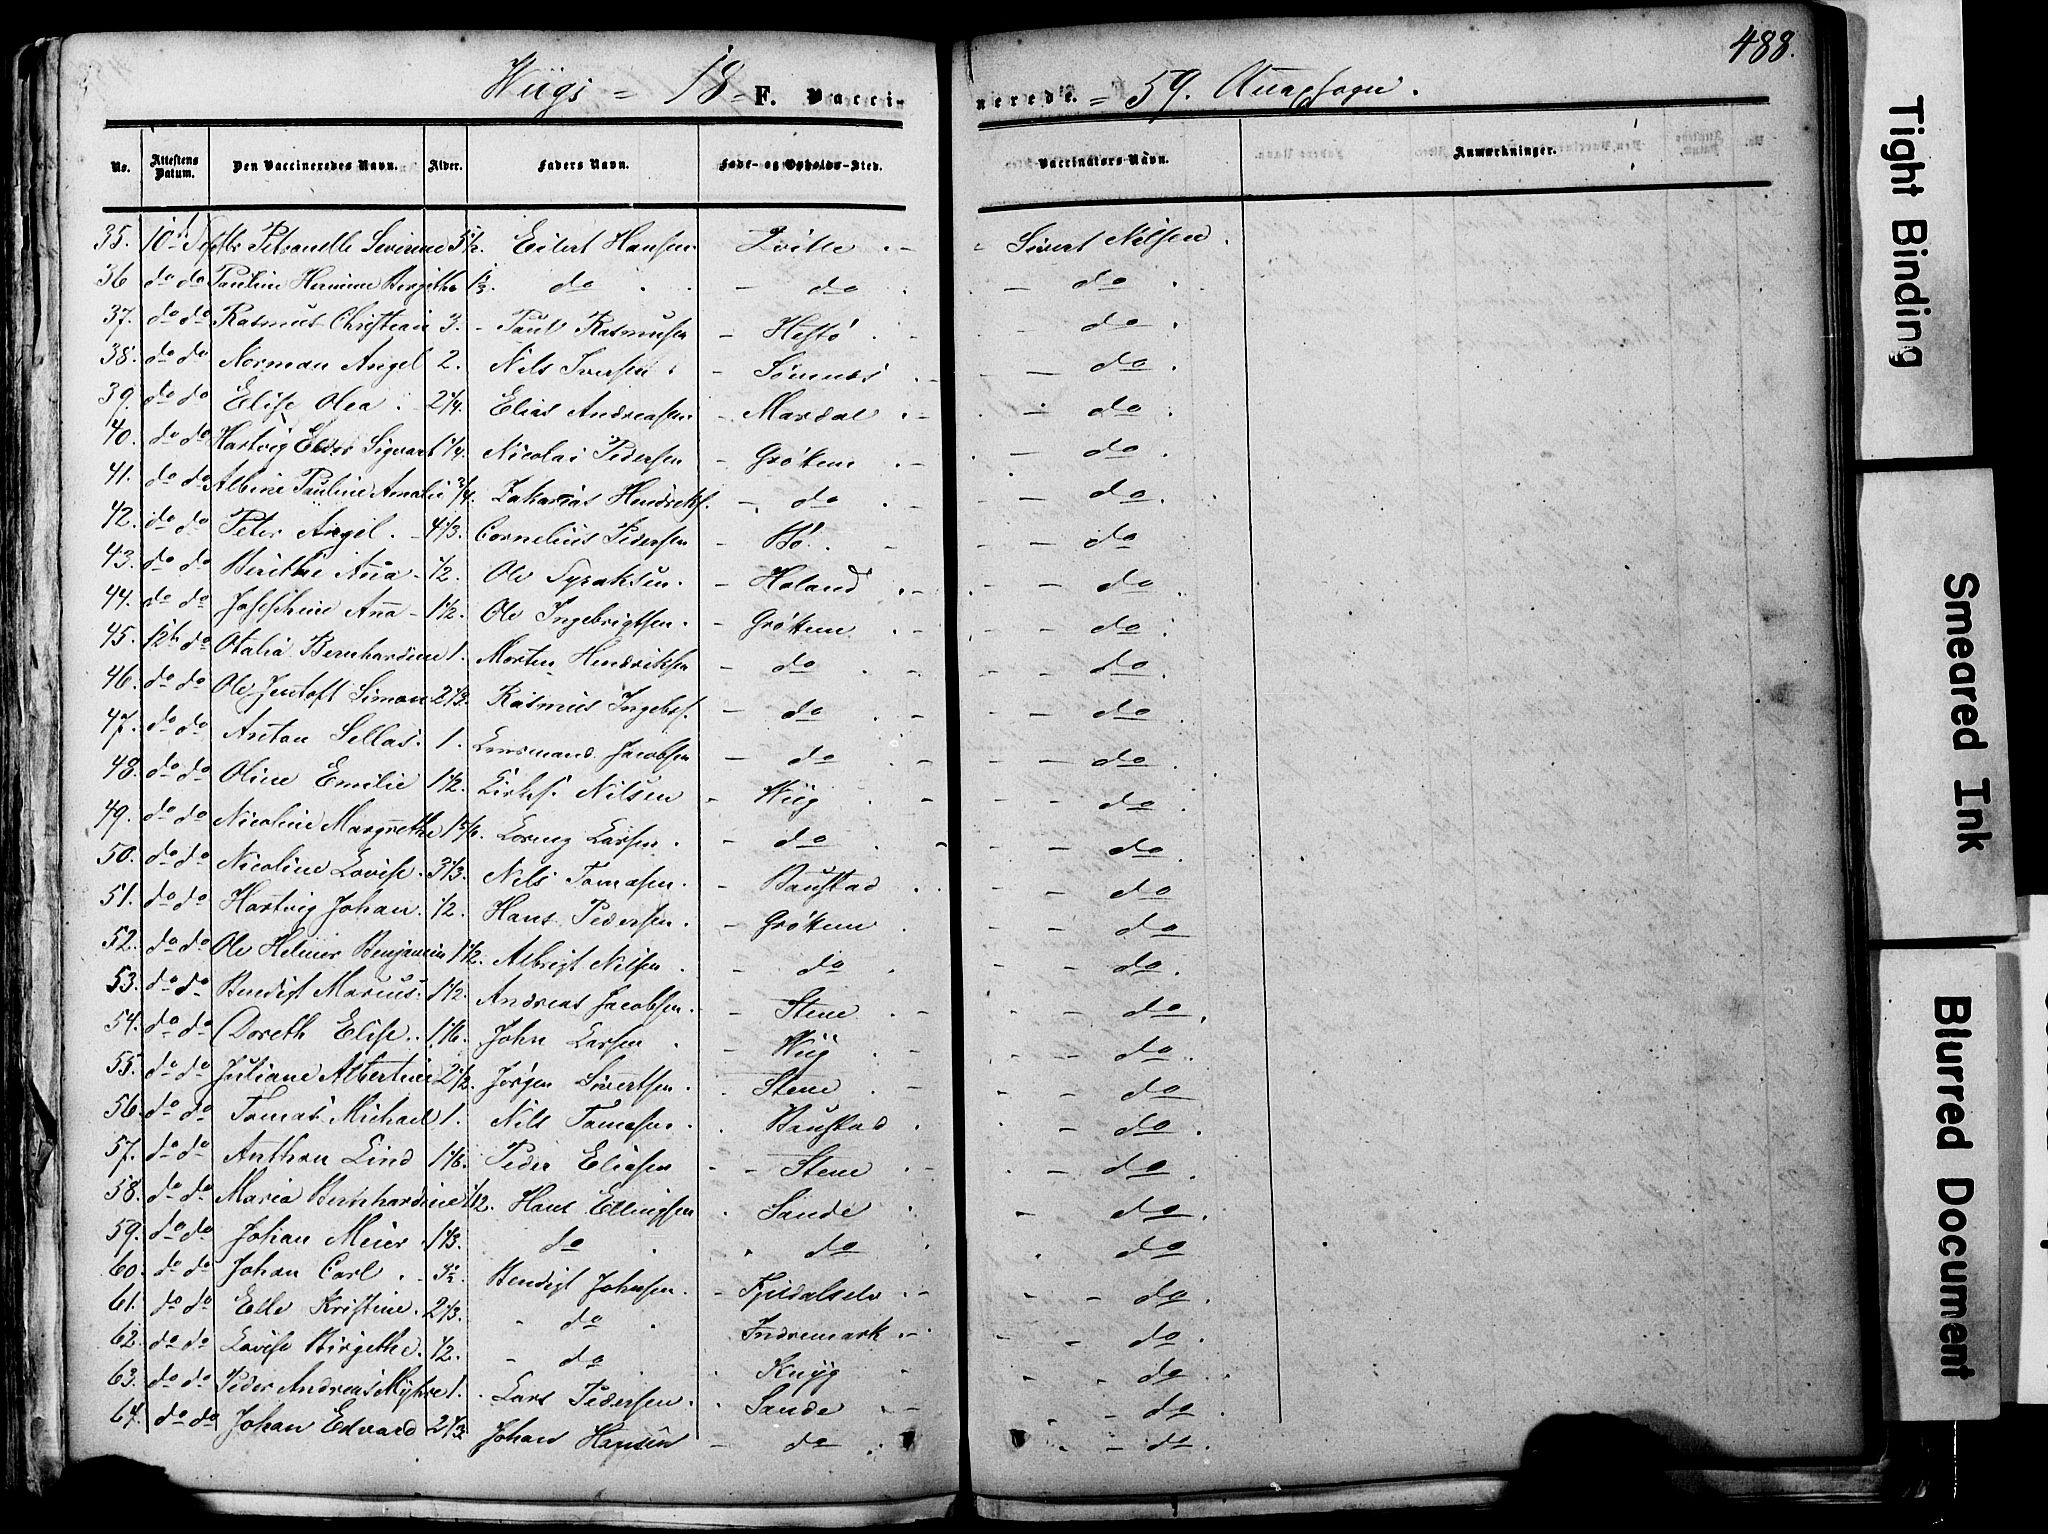 488.
Wiigs = 18 = F. Vacci-
nerede. = 59.
No. Attestens Datum. Den Vaccineredes Navn. Alder. Faders Navn. Føde- og Opholds-Sted. Vaccinators Navn. Anmærkninger.
35. 10 Petronelle Severine 5 1/2. Eilert Hansen Sivert Nilsen.
36 do do Pauline Hermine Birgithe 1/3. do. - do. - do.
37. do do Rasmus Christian 3. - Paul Rasmusen - Hestø. - do.
38. do do Norman Angel 2. Nils Iversen - - do.
39. do do Elise Olea. 2 1/4. Elias Andreasen - Mardal. - do.
40. do do Hartvig Sigvart 1 1/4. Nicolai Pedersen - Grøttem. - do.
41. do do Albine Pauline Amalie 3/4. Zakarias Hendriks. - do. - do.
42. do do Peter Angel. 4 1/3. Cornelius Pedersen - Bø. - do
43. do do Berithe Ana - 1/2. Ole Syraksen. - Holand. - do
44. do do Josephine Ana - 1 1/2. Ole Ingebrigtsen. - Grøttem. - do.
45. 12th do Otalia Bernhardine 1. Morten Hendriksen - do. - do
46. do do Ole Jentoft Simon 2 1/3. Rasmus Ingebr. - do. - do.
47. do do Anton Sellas. 1. Jacobsen - do. - do.
48. do do Oline Emilie 1 1/2. Nilsen - Wiig - do.
49. do do Nicoline Margrethe 1 5/6. Lornts Larsen. - do. - do.
50. do do Nicoline Lovise. 3 1/3. Nils Tomasen. - Baustad. - do
51. do do Hartvig Johan. 1/2. Hans Pedersen. - Grøttem. - do
52. do do Ole Helmer Benjamin 1 1/2. Albrigt Nilsen. - do. - do.
53. do do Bendigt Marius. 1 1/2. Andreas Jacobsen. - Stene. - do.
54. do do Doreth Elise. 1 1/6. John Larsen. - Wiig. - do.
55. do do Juliane Albertine 2 1/2. Jørgen Sivertsen. - Stene. - do
56. do do Tomas Michael 1. Nils Tomasen. - Baustad. - do.
57. do do Anthon Lind 1 1/6. Peder Eliasen - Stene. - do.
58. do do Maria Bernhardine 1/12. Hans Ellingsen - Sande. - do.
59. do do Johan Meier. 1 1/3. do. - do. - do
60. do do Johan Carl. Bendigt Johnsen. - do.
61. do do Elle Kristine. 2 1/3. - do. Indremark. - do.
62. do do Lovise Birgethe. 1/2. - do - do.
63. do do Peder Andreas Myhre 1. Lars Pedersen. - Sande - do.
64. do do Johan Edvard 2 1/3 Johan Hansen - do. - do.
Tight Binding
Smeared Ink
Blurred Document